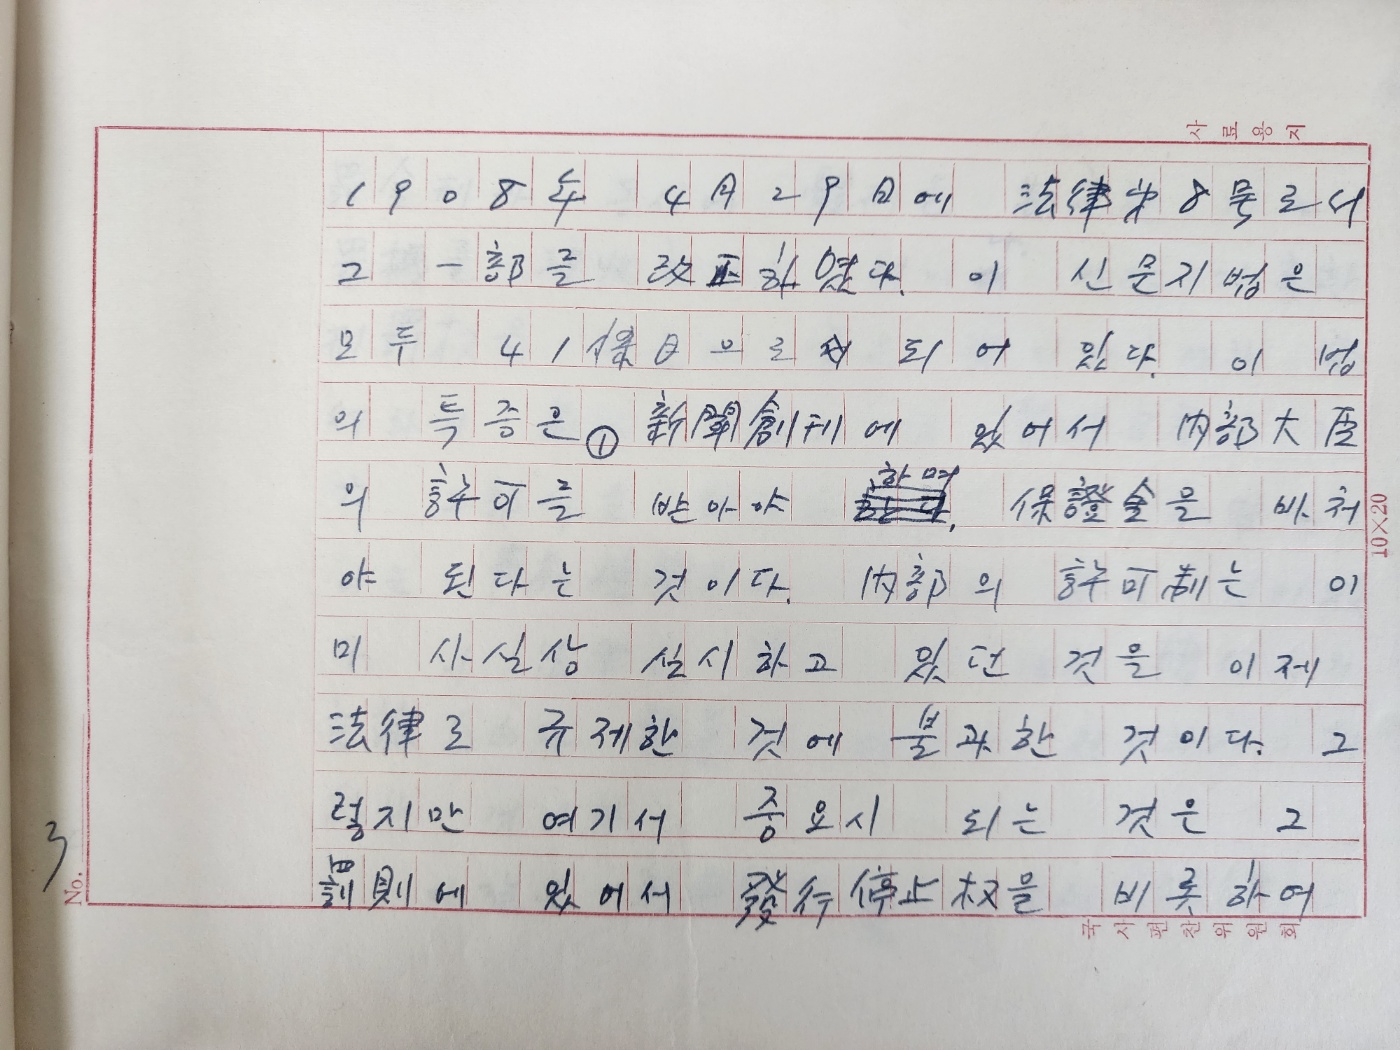 사료용지
1908年 4月 29日에 法律第8号로서
그 一部를 改正하였다. 이 신문지법은
모두 41條目으로서 되어 있다. 이 법
의 특증은 ① 新聞創刊에 있어서 內部大臣
의 許可를 받아야 하며 保證金을 바쳐
야 된다는 것이다. 內部의 許可制는 이
미 사실상 실시하고 있던 것을 이제
法律로 규제한 것에 불과한 것이다. 그
렇지만 여기서 중요시 되는 것은 그
罰則에 있어서 發行停止权을 비롯하여
10×20
No. 3
국사편찬위원회